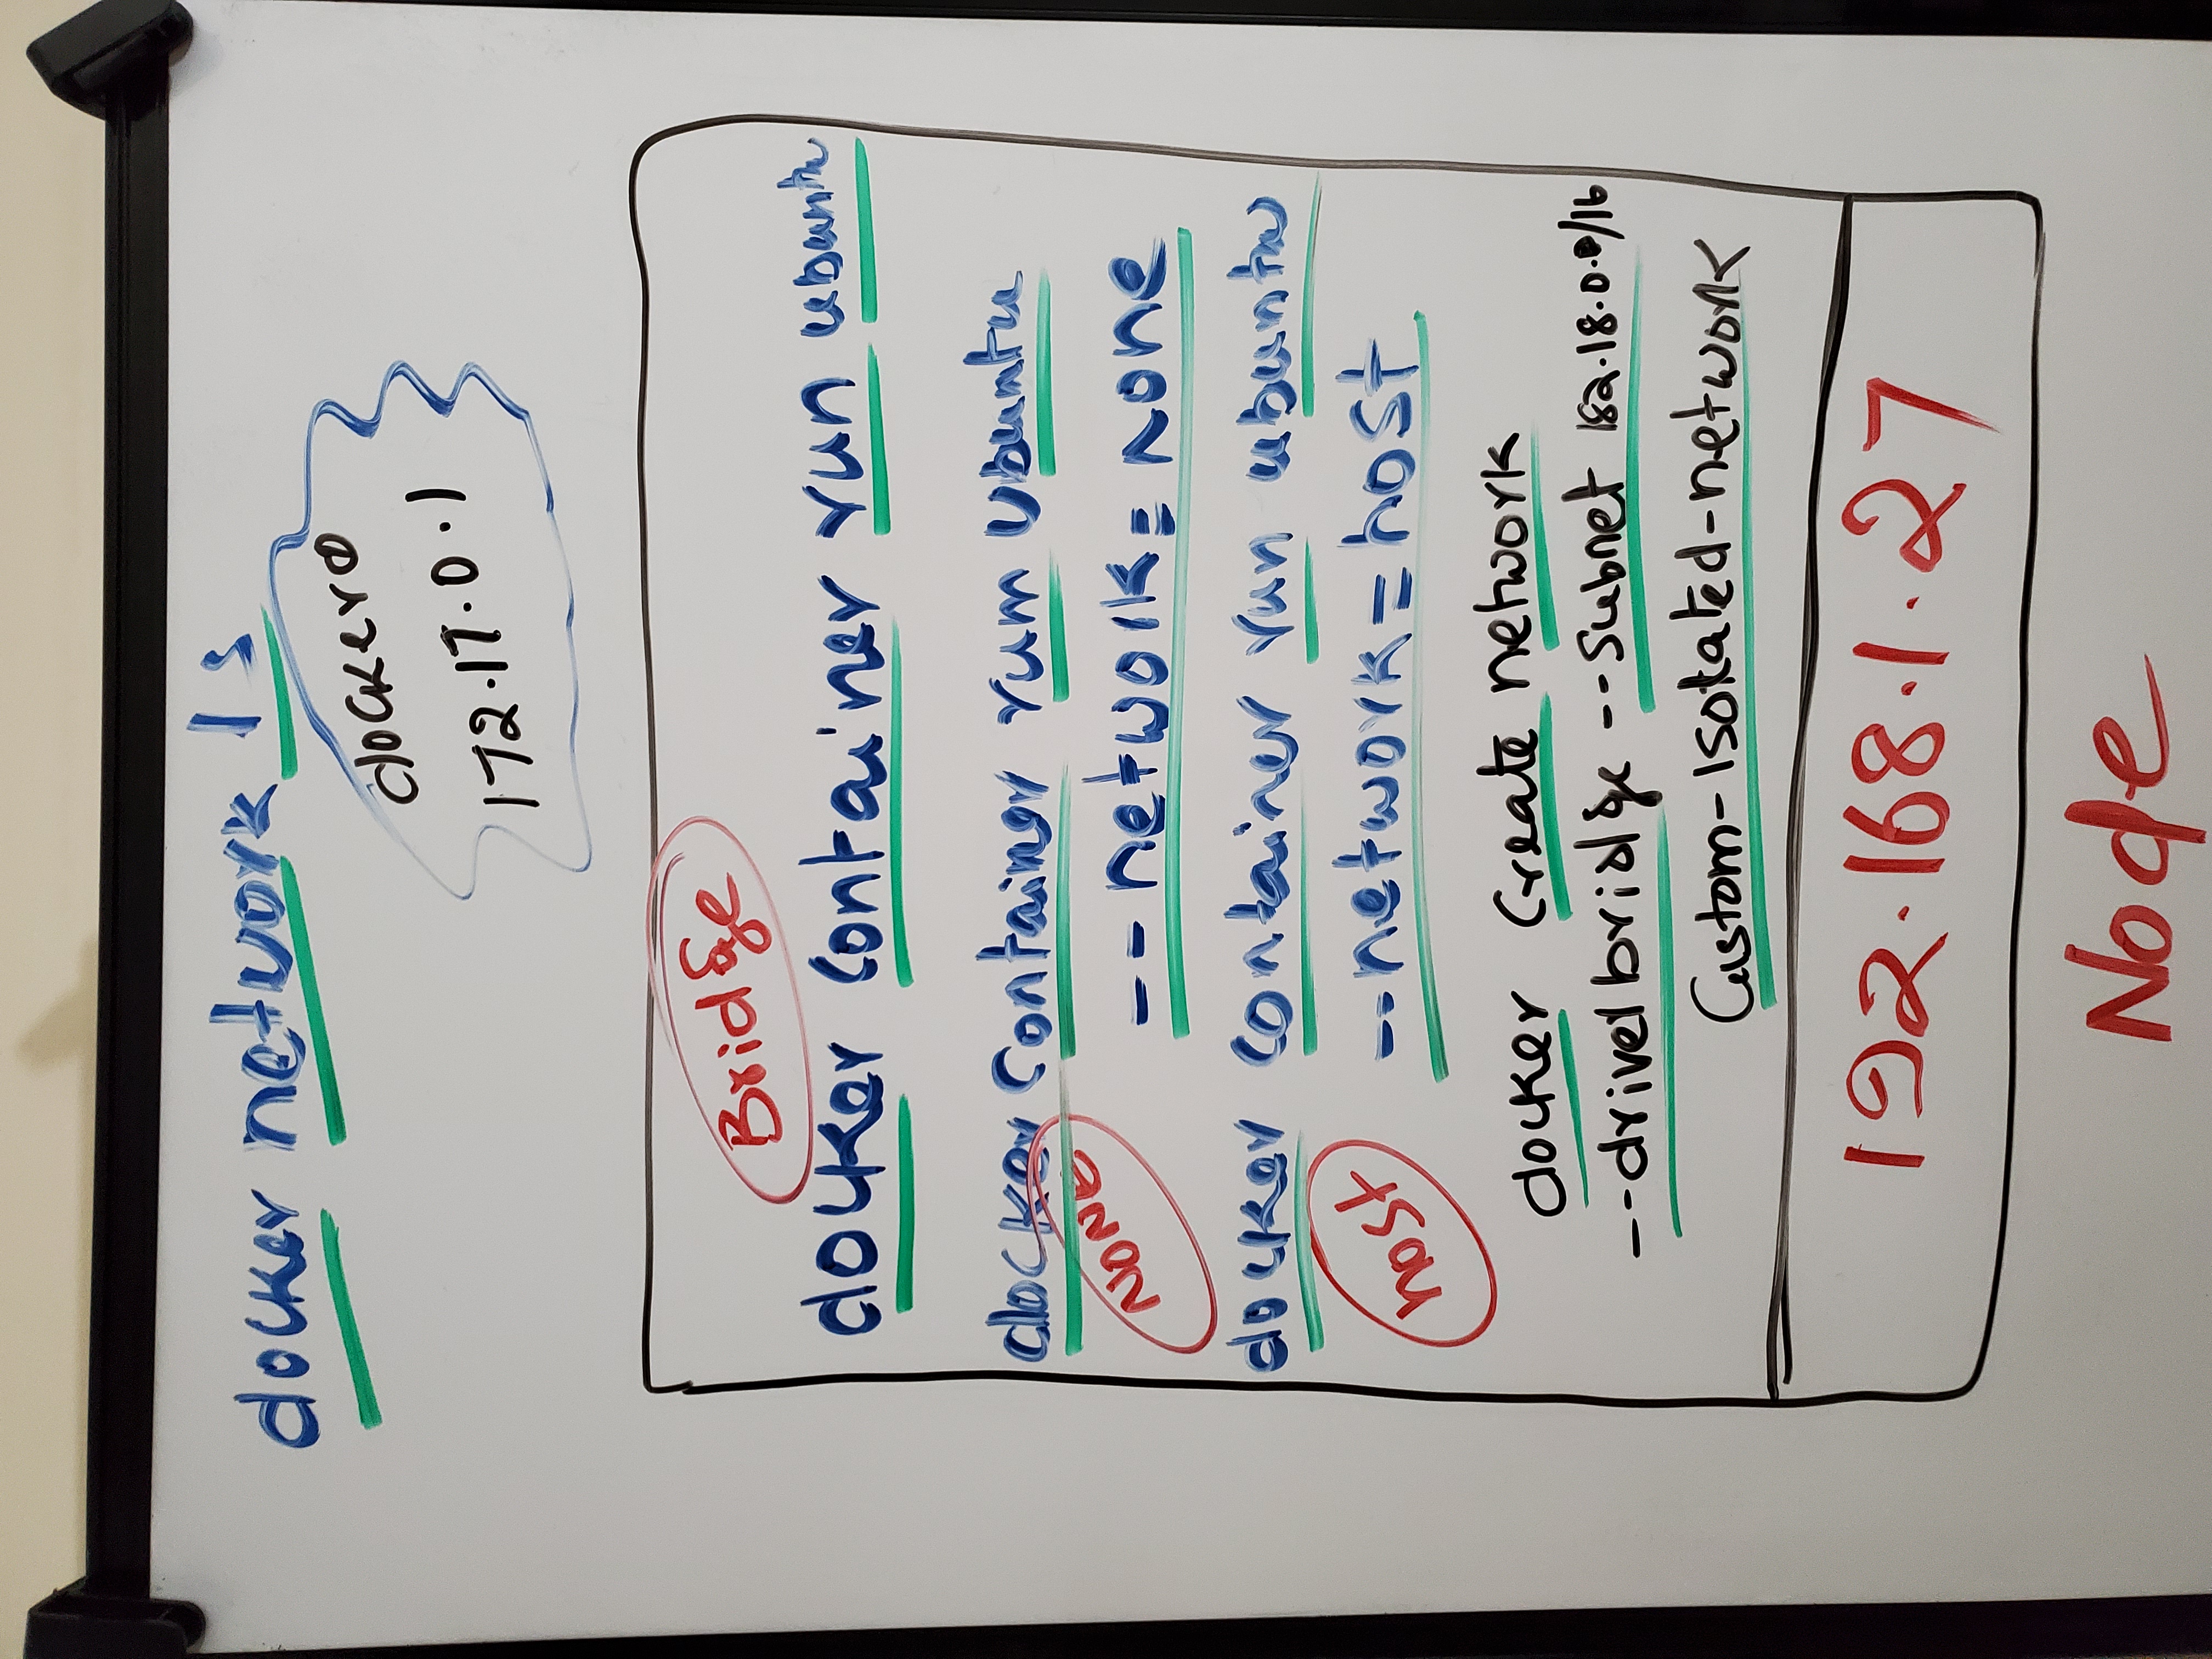 docker network ls
docker0
172.17.0.1
Bridge
docker container run ubuntu
docker container rum Ubuntu
NONE
--network=none
docker container run ubuntu
host
--network=host
docker Create network
--driver bridge --subnet 182.18.0.0/16
Custom-isolated-network
192.168.1.27
Node